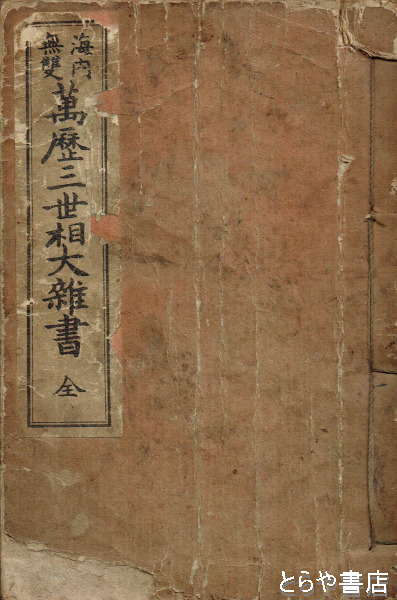 海内
無雙
萬歷三世相大雜書
全
とらや書店